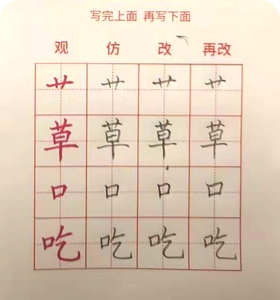 写完上面 再写下面
观 仿 改 再改
艹 艹 艹 艹
草 草 草 草
口 口 口 口
吃 吃 吃 吃